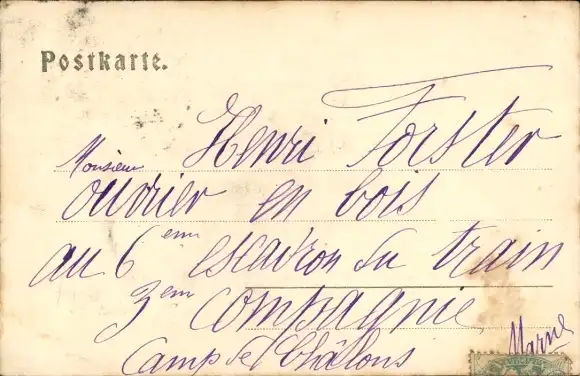 Postkarte.
Monsieur Henri Forster
ouvrier en bois
au 6eme escadron du train
3em Compagnie
Camp de Châlons
Marne